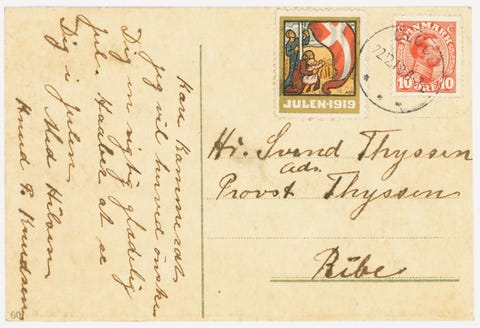 Kære Kammerat
jeg vil herved ønske
Dig en rigtig glædelig
Jul. Haaber at se
Dig i Julen.
Med Hilsen
Knud P. Knudsen
60
JULEN·1919
DANMARK
10 ØRE 10
Hr. Svend Thyssen
Adr.
Provst Thyssen
Ribe